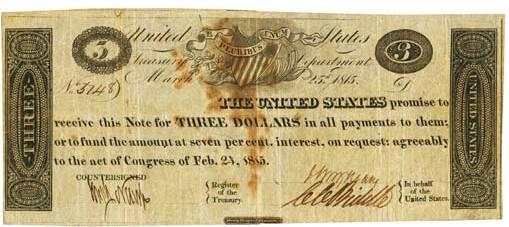 3 United E PLURIBUS UNUM States 3
Treasury Department
March 25th. 1815.
THREE
UNITED STATES
THE UNITED STATES promise to
receive this Note for THREE DOLLARS in all payments to them;
or to fund the amount at seven per cent. interest, on request: agreeably
to the act of Congress of Feb. 24, 1815.
COUNTERSIGNED
Register
of the
Treasury.
In behalf
of the
United States.